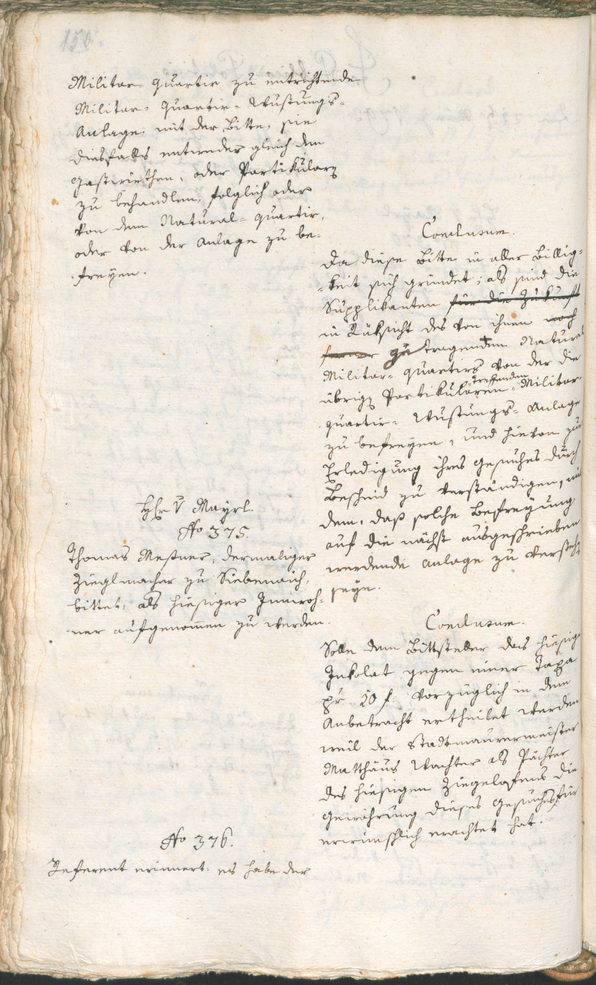 150.
Militar-quartie zu entrichtende
Militar-quartir-Wustungs-
Anlage, mit der Bitte, sie
diesfalls entweder gleich den
Gastwirthen, oder Partikularn
zu behandlen, folglich oder
von dem Natural-quartir,
oder von der Anlage zu be-
freyen.
Conclusum.
Da diese Bitte in aller Billig-
keit sich gründet, als sind die
Supplikanten für die Zukunft
in Rüksicht des von ihnen noch
ferner zu tragenden Natural
Militar-quartirs von der die
übrign Partikularen treffenden Militar-
quartir-Wustungs-Anlage
zu befreyen, und hievon zur
Erledigung ihres Gesuches durch
Bescheid zu verständigen, mit
dem, daß solche Befreyung
auf die nächst ausgeschrieben
werdende Anlage zu verstehen
seye.
H. v. Mayrl
No 375.
Thomas Meßner, dermaliger
Zieglmacher zu Siebenaich,
bittet, als hiesiger Innwoh-
ner aufgenommen zu werden.
Conclusum.
Solle dem Bittsteller das hiesige
Inkolat gegen einer Taxa
pr 20 f. vorzüglich in dem
Anbetracht ertheilet werden
weil der Stadtmaurermeister
Matthäus Wachter als Pächter
des hiesigen Ziegelofens die
Gewährung dieses Gesuches für
erwünschlich erachtet hat.
No 376.
Referent erinnert, es habe der